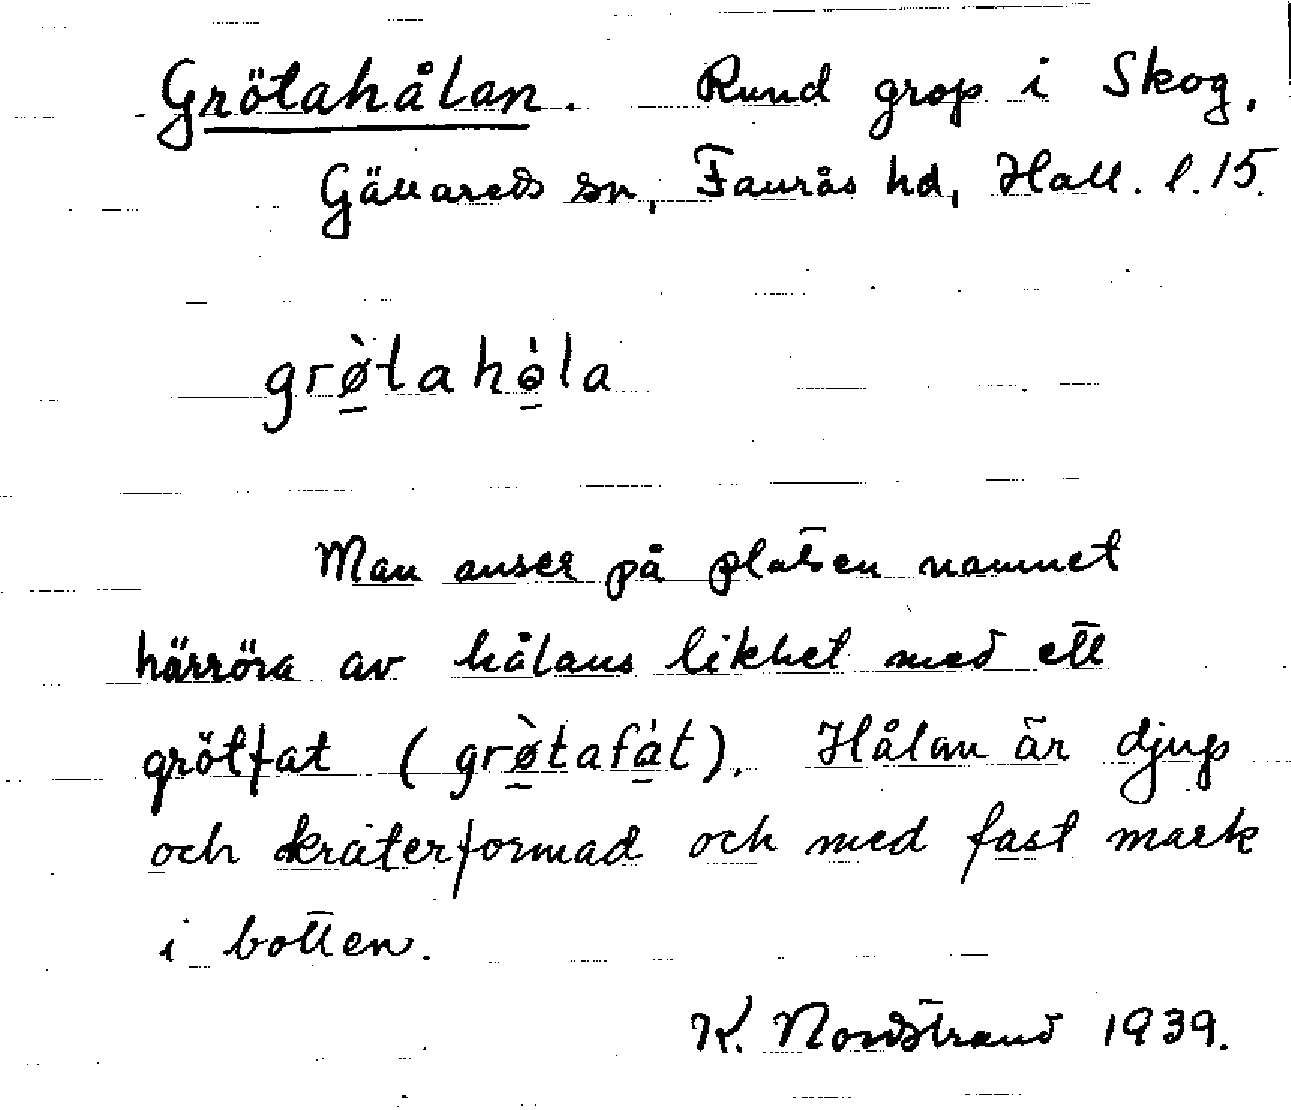 Grötahålan. Rund grop i Skog.
Gällareds sn, Faurås hd, Hall. l. 15.
grø̀tahòla
Man anser på platsen namnet
härröra av hålans likhet med ett
grötfat (grø̀tafát). Hålan är djup
och kraterformad och med fast mark
i botten.
K. Nordstrand 1939.